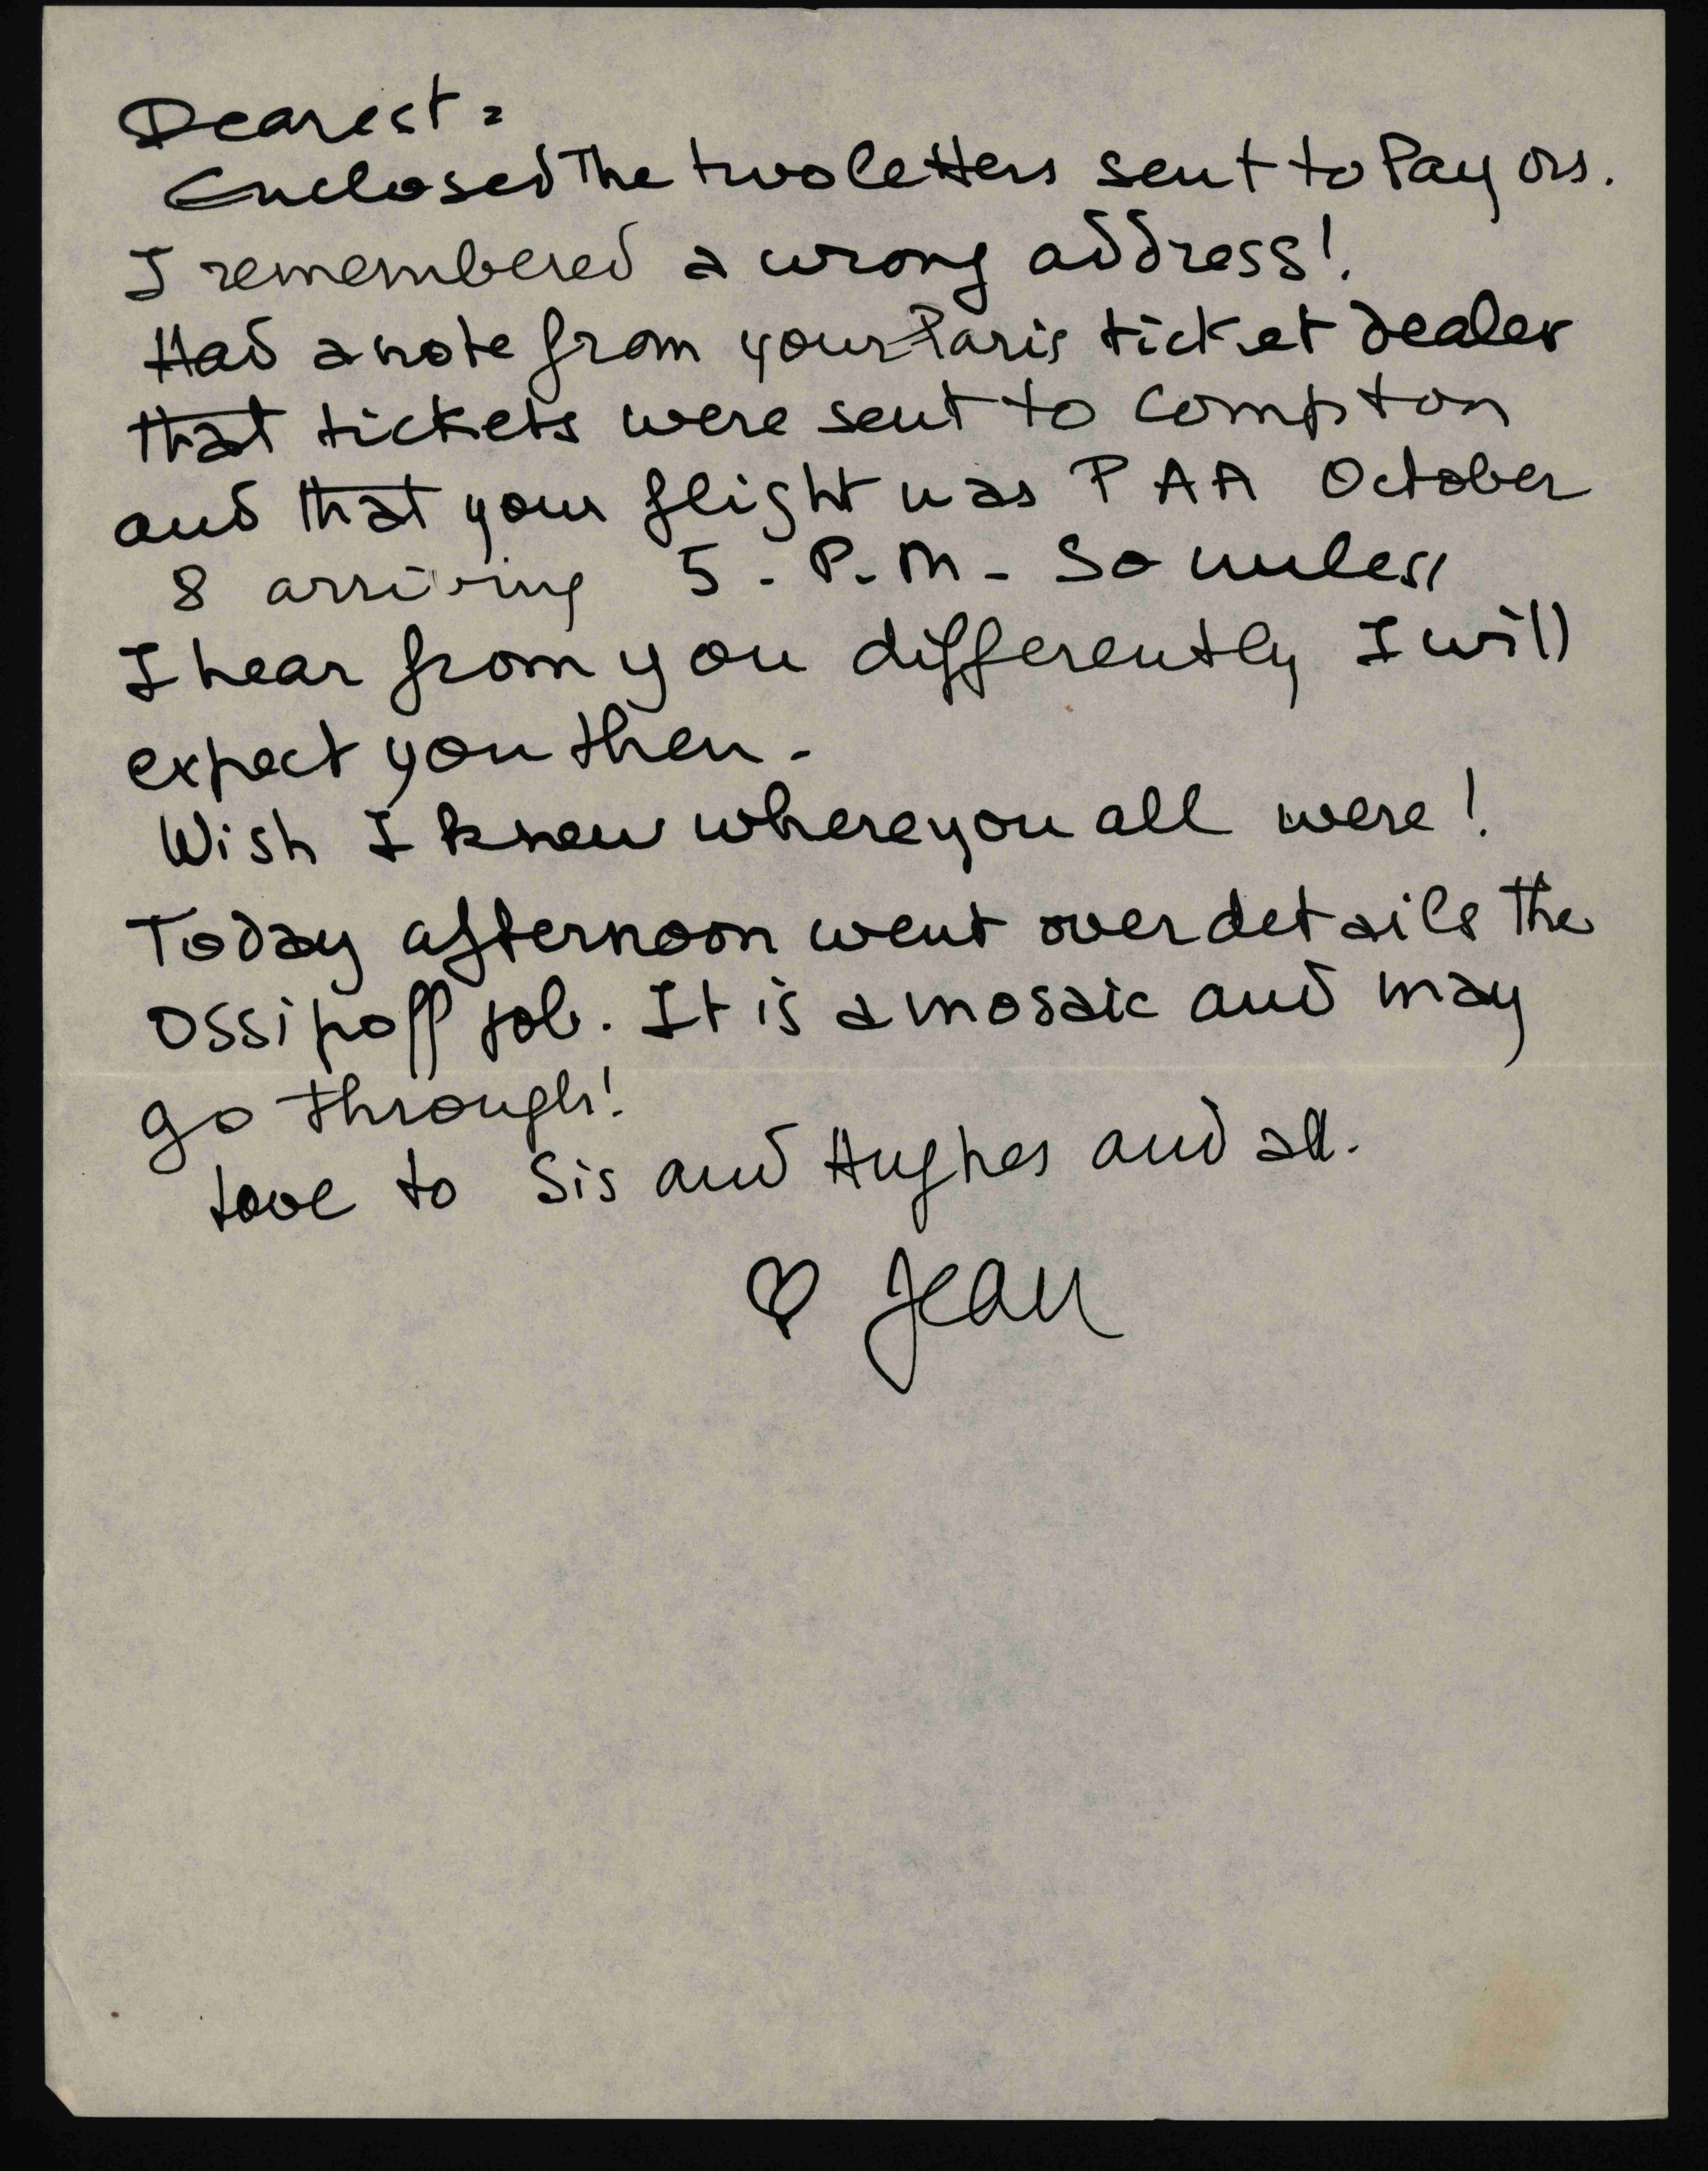 Dearest =
Enclosed the two letters sent to Payons.
I remembered a wrong address!
Had a note from your Paris ticket dealer
that tickets were sent to Compton
and that your flight was PAA October
8 arriving 5 - P.M. - So unless
I hear from you differently I will
expect you then -
Wish I knew where you all were!
Today afternoon went over details the
Ossipoff job. It is a mosaic and may
go through!
Love to Sis and Hughes and all.
♡ Jean